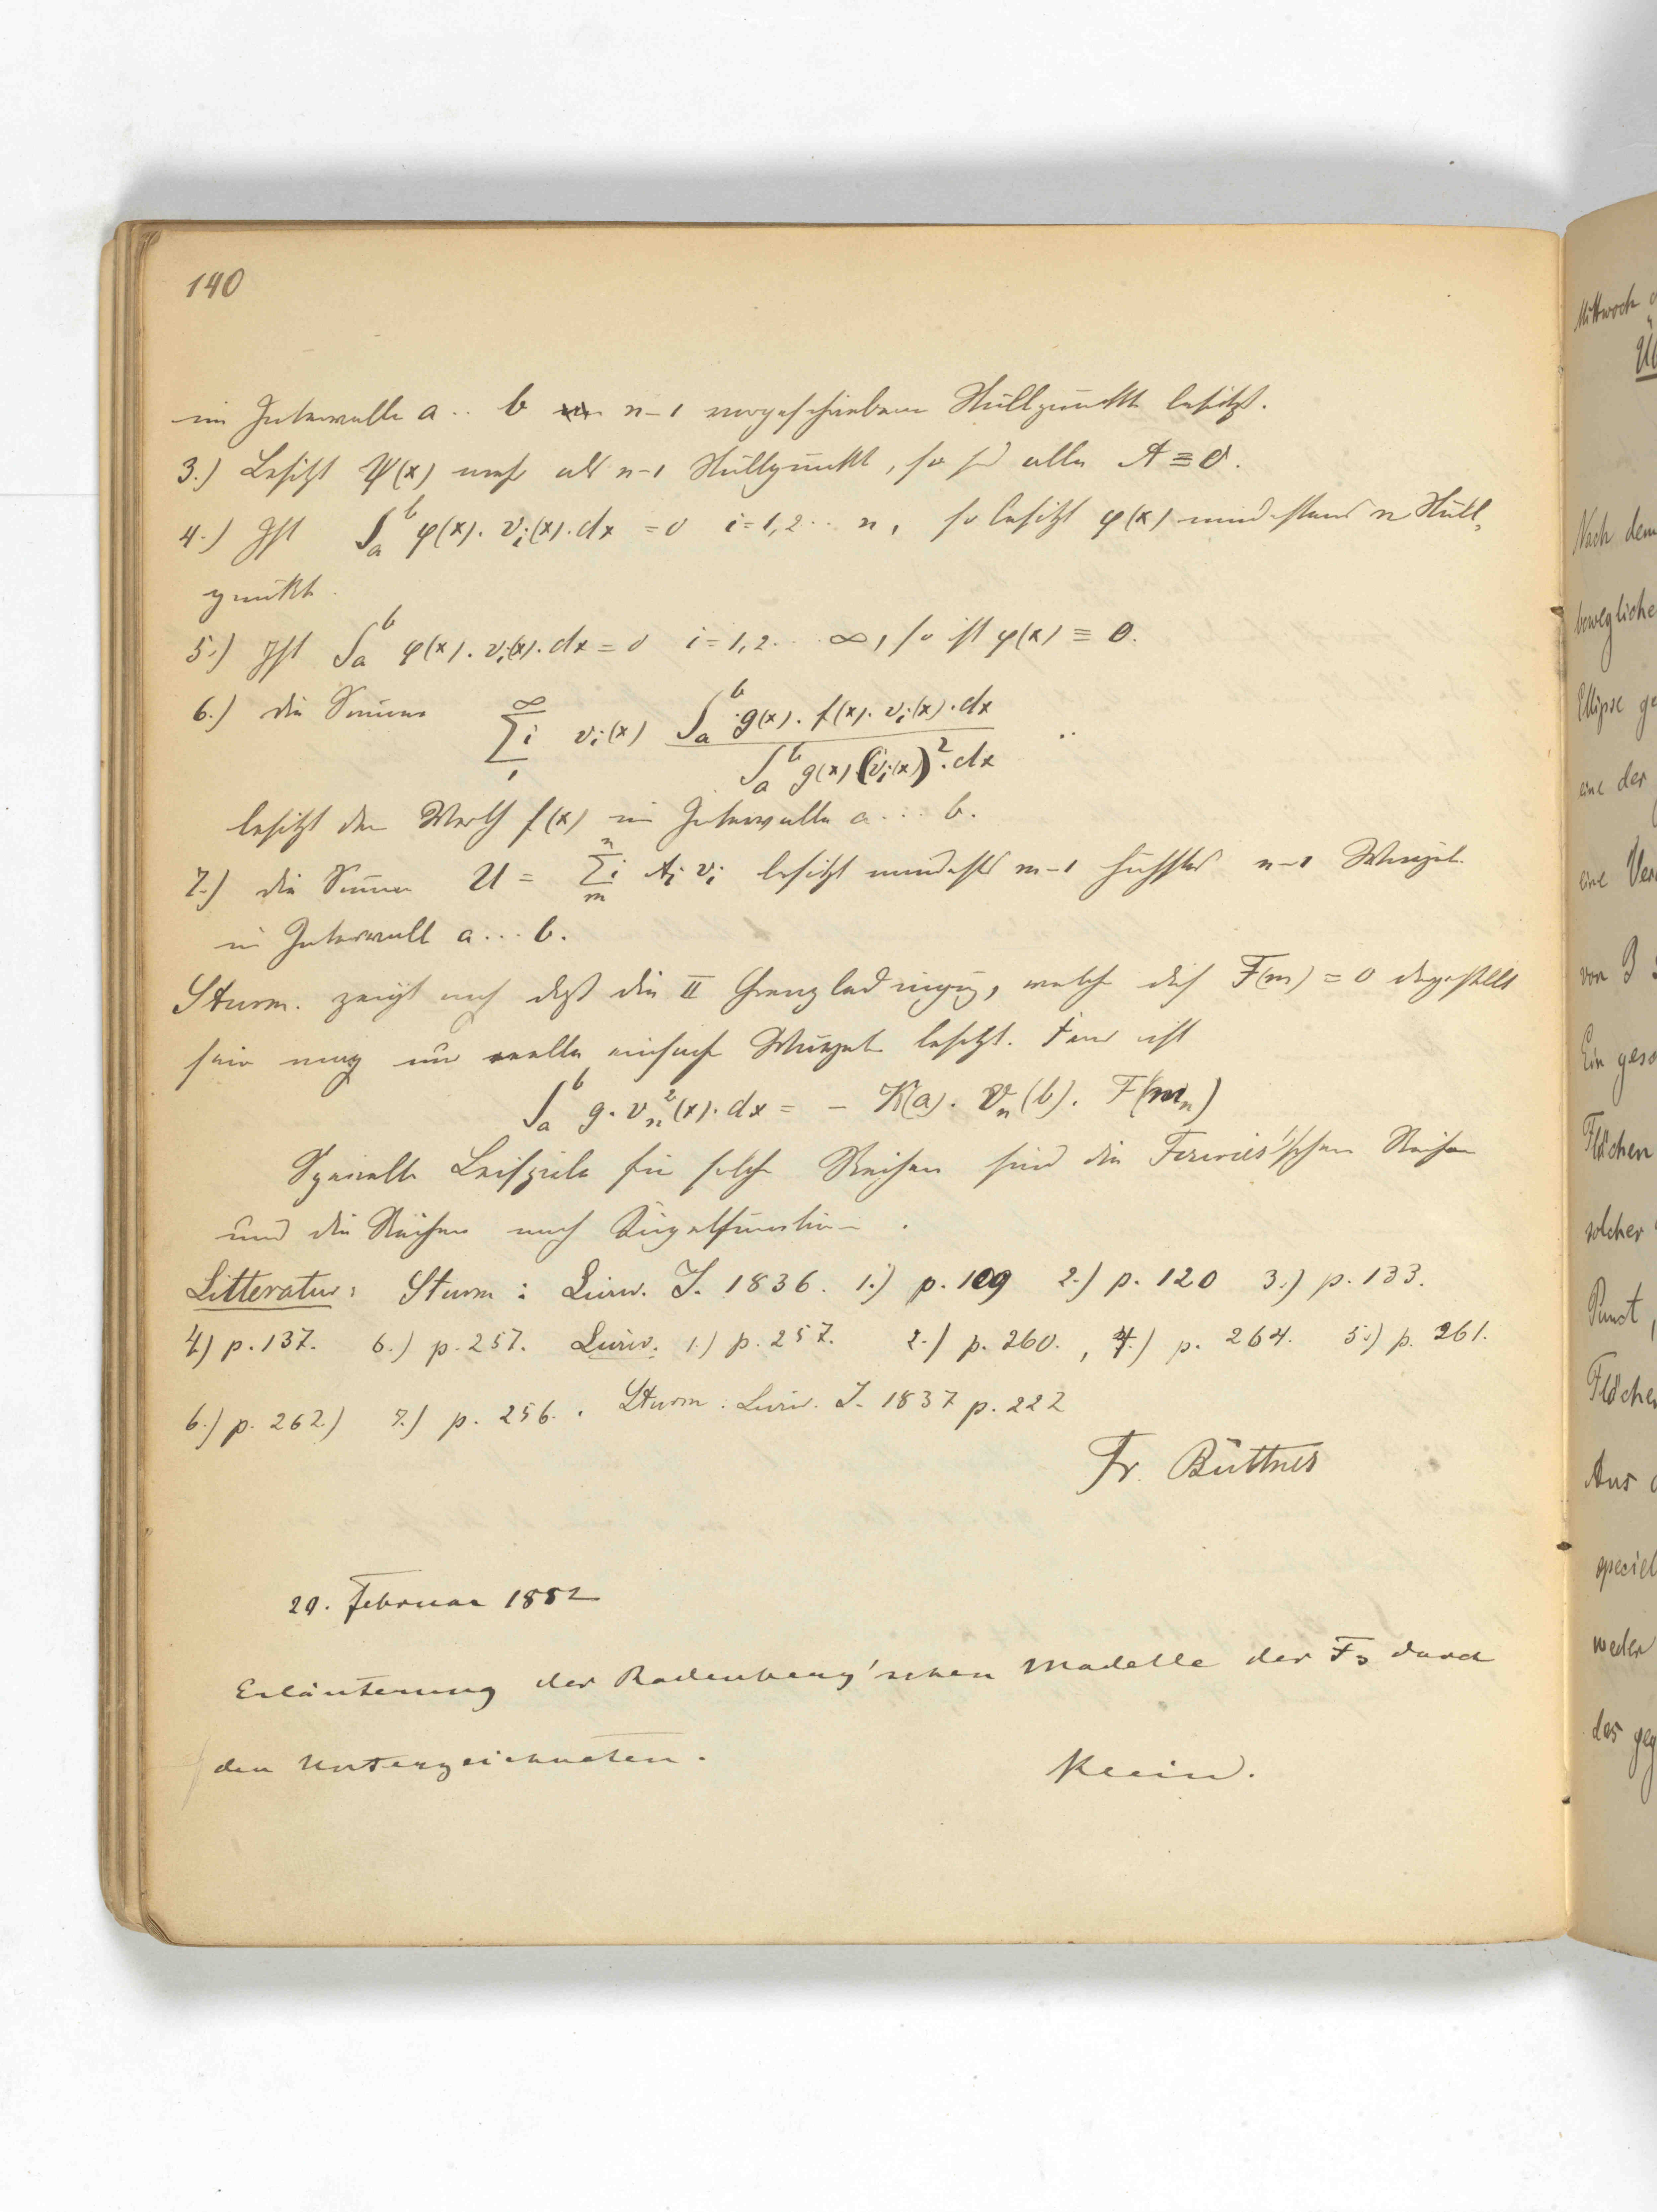 140
im Intervalle a .. b n-1 vorgeschriebene Nullpunkte besitzt.
3.) Besitzt ψ(x) mehr als n-1 Nullpunkte, so sd alle A ≡ 0.
4.) Ist ∫_a^b φ(x). v_i(x). dx = 0 i = 1, 2 .. n, so besitzt φ(x) mindestens n Null-
punkte.
5.) Ist ∫_a^b φ(x). v_i(x). dx = 0 i = 1, 2 ... ∞, so ist φ(x) ≡ 0.
6.) die Summe ∑_1^∞ i v_i(x) ∫_a^b g(x). f(x). v_i(x). dx
∫_a^b g(x) (v_i(x))^2. dx
besitzt den Werth f(x) im Intervalle a ... b.
7.) die Summe U = ∑_m^n i A_i v_i besitzt mindestes m-1 höchstes n-1 Wurzel
im Intervall a ... b.
Sturm. zeigt noch daß die II Grenzbedingung, welche dch F(m) = 0 dargestellt
sein mag nur reelle einfache Wurzeln besitzt. Fener ist
∫_a^b g. v_n^2(x). dx = - K(a). V_n(b). F(m_n)
Specielle Beispiele für solche Reihen sind die Fourier'schen Reihen
und die Reihen nach Kugelfunction .
Litteratur: Sturm: Liouv. J. 1836. 1.) p. 109 2.) p. 120 3.) p. 133.
4) p. 137. 6.) p. 257. Liouv. 1.) p. 257. 2.) p. 260. , 4.) p. 264. 5.) p. 261.
6.) p. 262.) 7.) p. 256. . Sturm: Liouv. J. 1837 p. 222
Fr. Büttner
20. Februar 1882
Erläuterung der Rodenberg'schen Modelle der F_3 durch
den Unterzeichneten.
Klein.
Mittwoch
Nach dem
bewegliche
Ellipse
eine der
eine
von 3
Ein
Flächen
solcher
Punct,
Fläche
Aus
speciel
weder
des